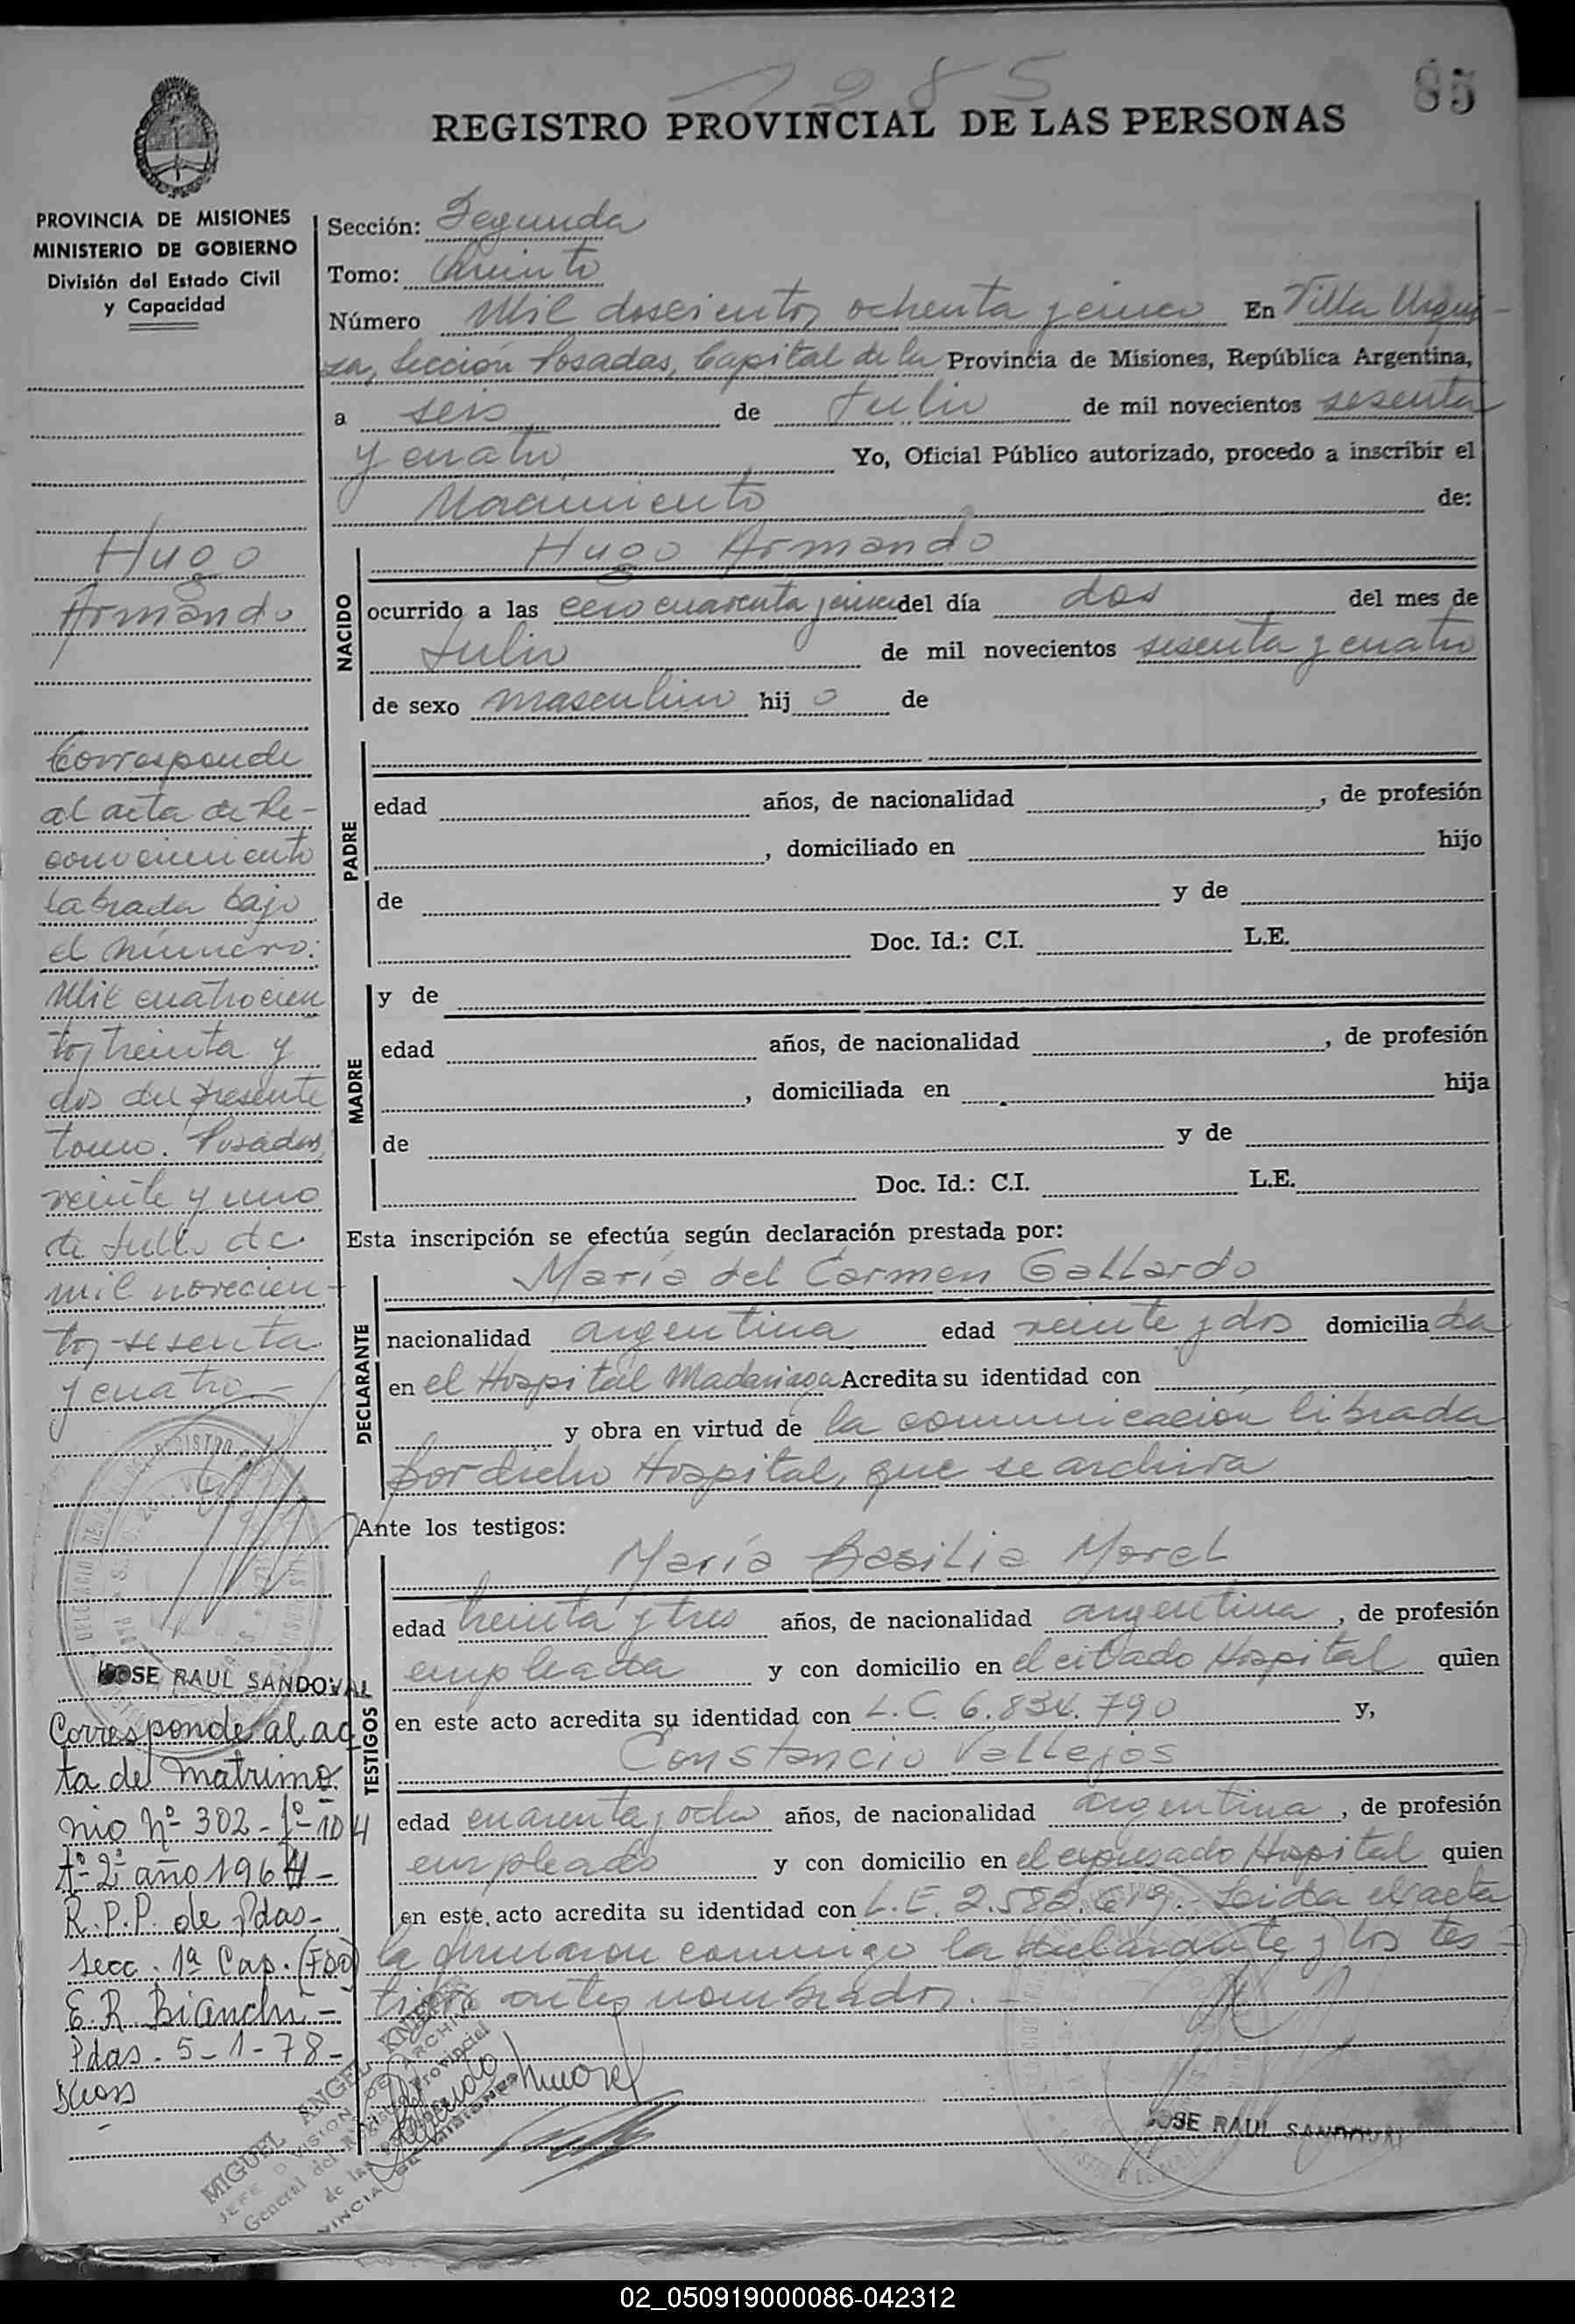 1285
85
REGISTRO PROVINCIAL DE LAS PERSONAS
PROVINCIA DE MISIONES
MINISTERIO DE GOBIERNO
División del Estado Civil
y Capacidad
Sección: Segunda
Tomo: Quinto
Número Mil doscientos ochenta y cinco En Villa Urqui-
za, Sección Posadas, Capital de la Provincia de Misiones, República Argentina,
a seis de Julio de mil novecientos sesenta
y cuatro Yo, Oficial Público autorizado, procedo a inscribir el
Nacimiento de:
Hugo
Armando
NACIDO
Hugo Armando
ocurrido a las cero cuarenta y cinco del día dos del mes de
Julio de mil novecientos sesenta y cuatro
de sexo masculino hijo de
PADRE
edad años, de nacionalidad , de profesión
, domiciliado en hijo
de y de
Doc. Id.: C.I. L.E.
MADRE
y de
edad años, de nacionalidad , de profesión
, domiciliada en hija
de y de
Doc. Id.: C.I. L.E.
Esta inscripción se efectúa según declaración prestada por:
DECLARANTE
María del Carmen Gallardo
nacionalidad argentina edad veinte y dos domiciliada
en el Hospital Madariaga Acredita su identidad con
y obra en virtud de la comunicación librada
por dicho Hospital, que se archiva
Ante los testigos:
TESTIGOS
María Basilia Morel
edad treinta y tres años, de nacionalidad argentina, de profesión
empleada y con domicilio en el citado Hospital quien
en este acto acredita su identidad con L.C. 6.834.790 y,
Constancio Vallejos
edad cuarenta y ocho años, de nacionalidad argentina, de profesión
empleado y con domicilio en el expresado Hospital quien
en este acto acredita su identidad con L.E. 2.582.619.- Leida el acta
la firmaron conmigo la declarante y los tes-
tigos antes nombrados.
Corresponde
al acta de Re-
conocimiento
labrada bajo
el número:
Mil cuatrocien
tos treinta y
dos del presente
tomo. Posadas,
veinte y uno
de Julio de
mil novecien-
tos sesenta
y cuatro
JOSE RAUL SANDOVAL
Corresponde al ac
ta de matrimo
nio Nº 302 - fº 104
Tº 2º año 1964 -
R.P.P. de Pdas -
secc. 1ª Cap. (FDO)
E.R. Bianchi -
Pdas - 5-1-78 -
MIGUEL ANGEL
General del Registro Provincial
de las
JOSE RAUL SANDOVAL
02_050919000086-042312